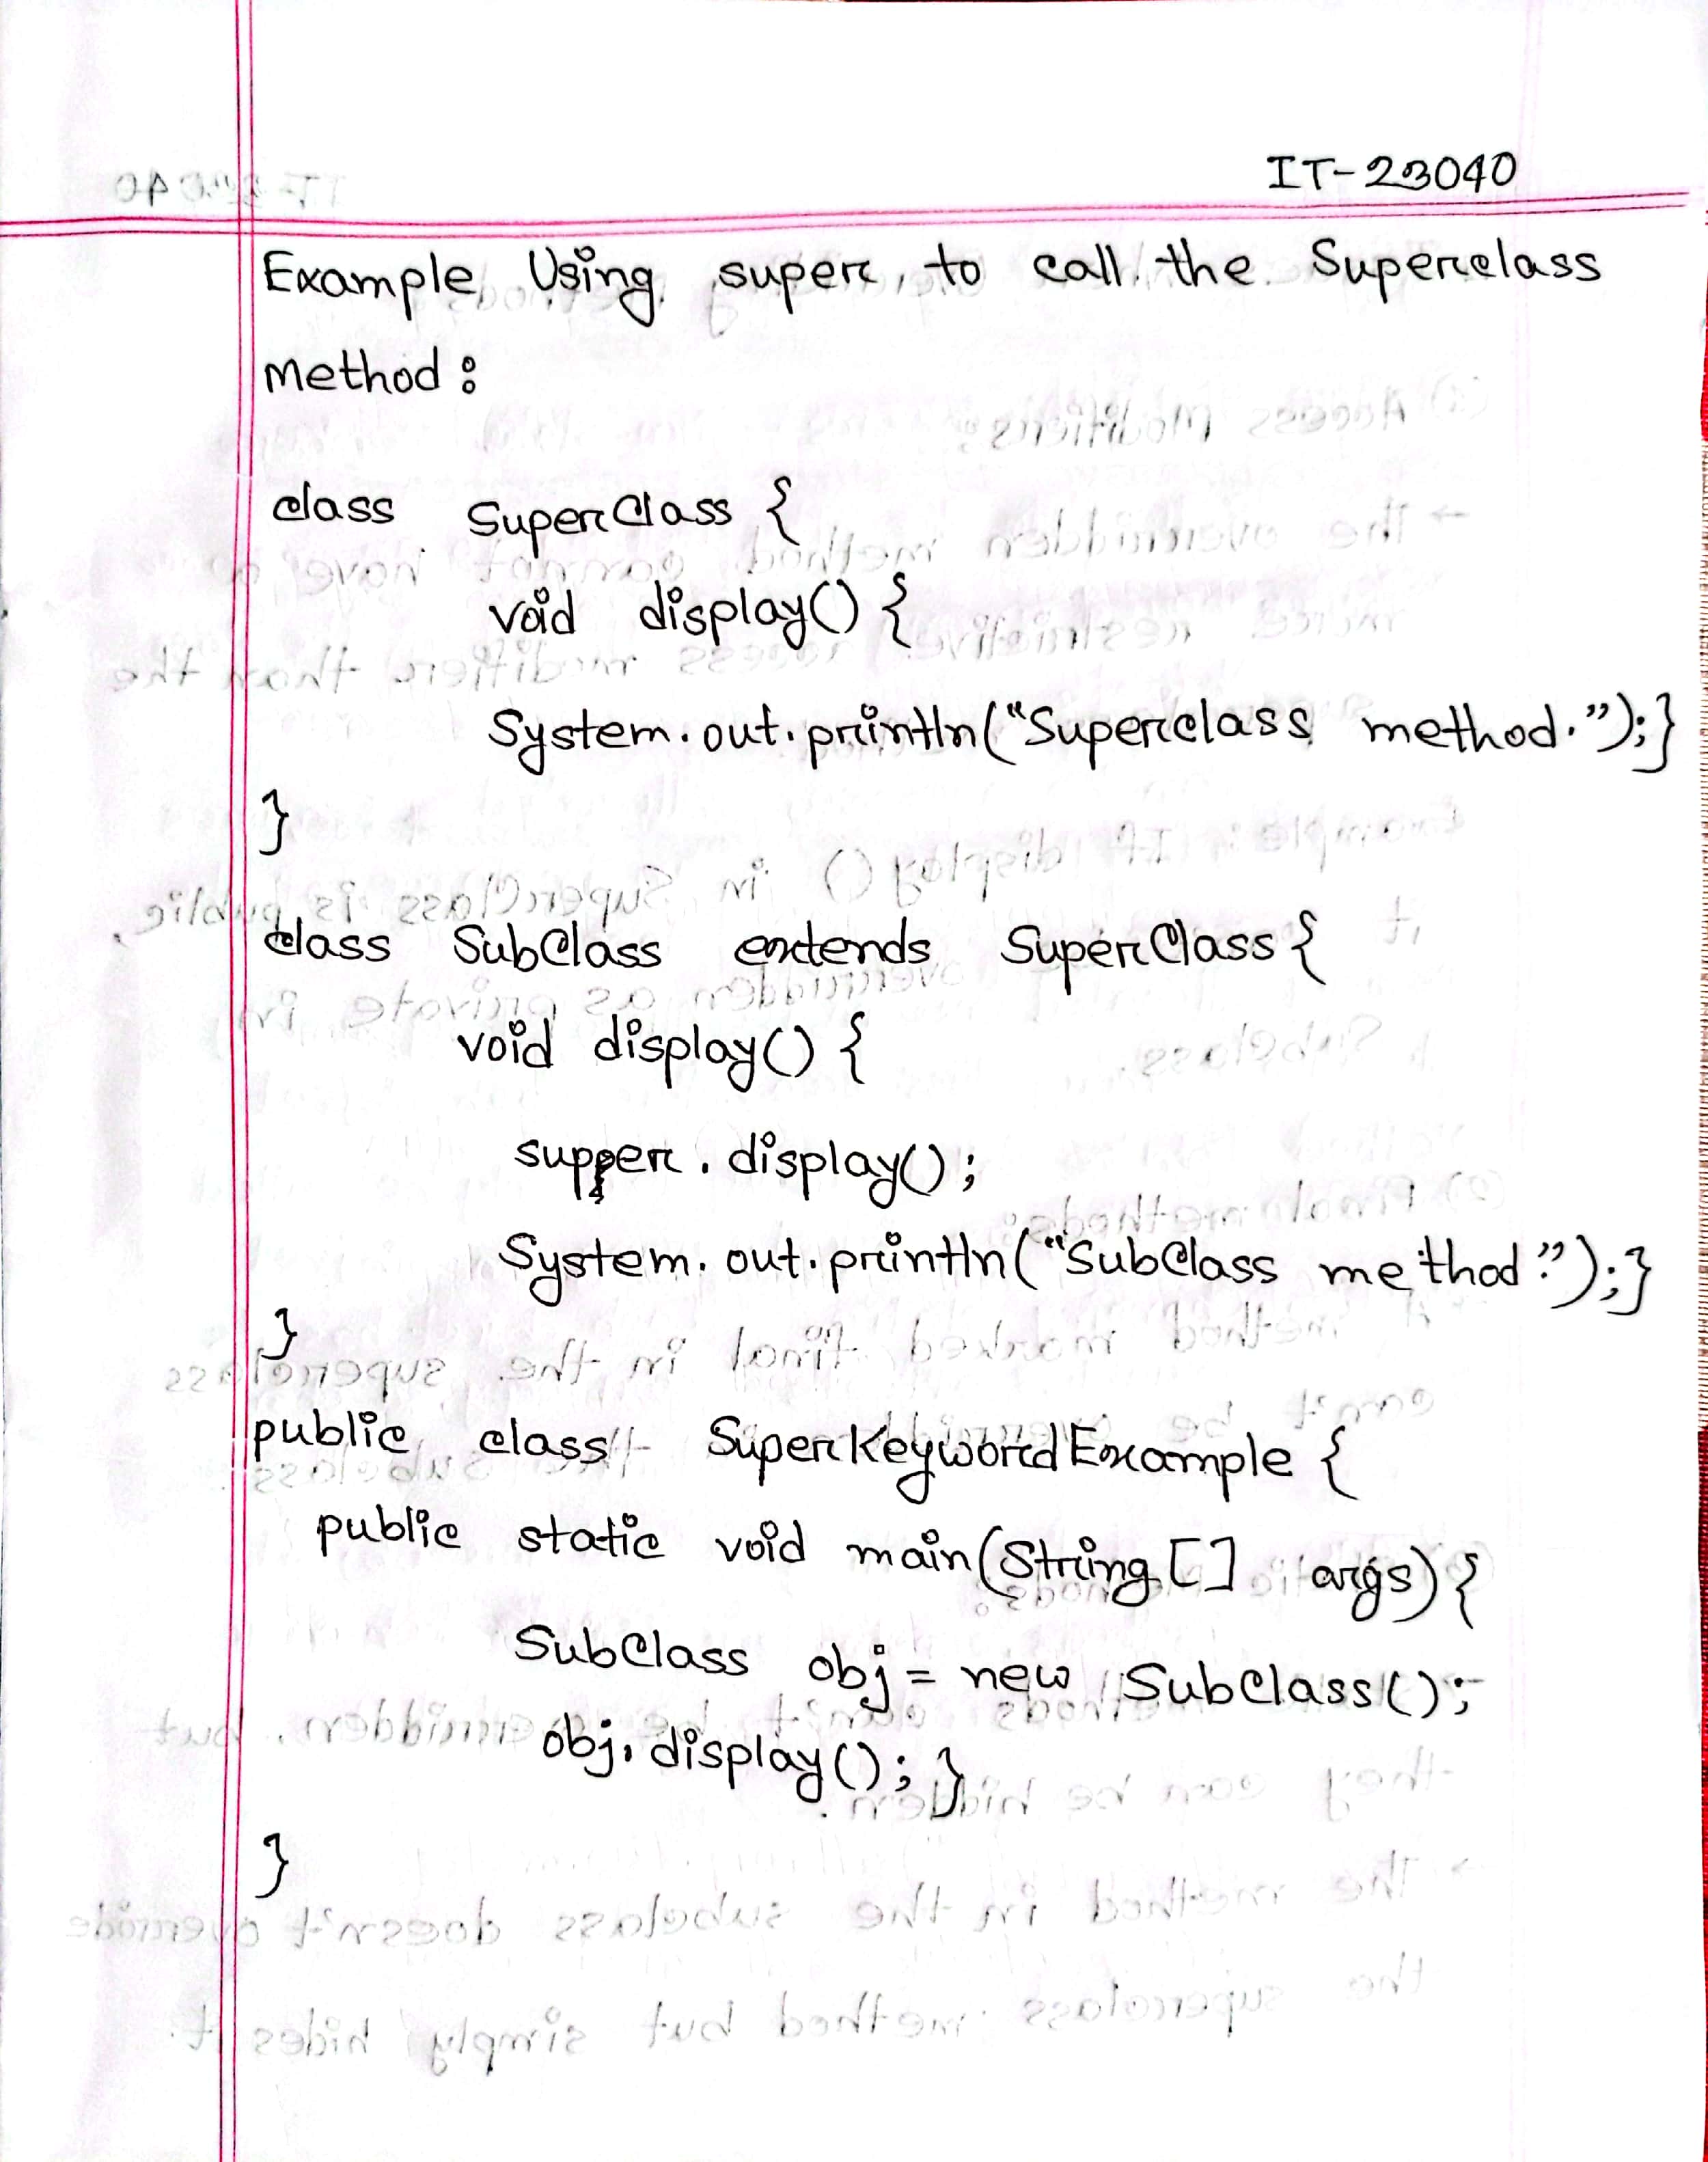 IT-23040
Example Using super, to call the Superclass
method:
class SuperClass {
void display() {
System.out.println("Superclass method.");}
}
class SubClass extends SuperClass {
void display() {
supper.display();
System.out.println("SubClass method.");}
}
public class SuperKeywordExample {
public static void main(String[] args){
SubClass obj = new SubClass();
obj.display(); }
}